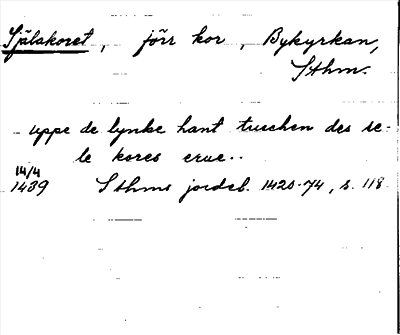 Själakoret, förr kor, Bykyrkan,
Sthm.
uppe de lynke hant tuschen des se-
le kores erue..
14/4
1439 Sthms jordeb. 1420-74, s. 118